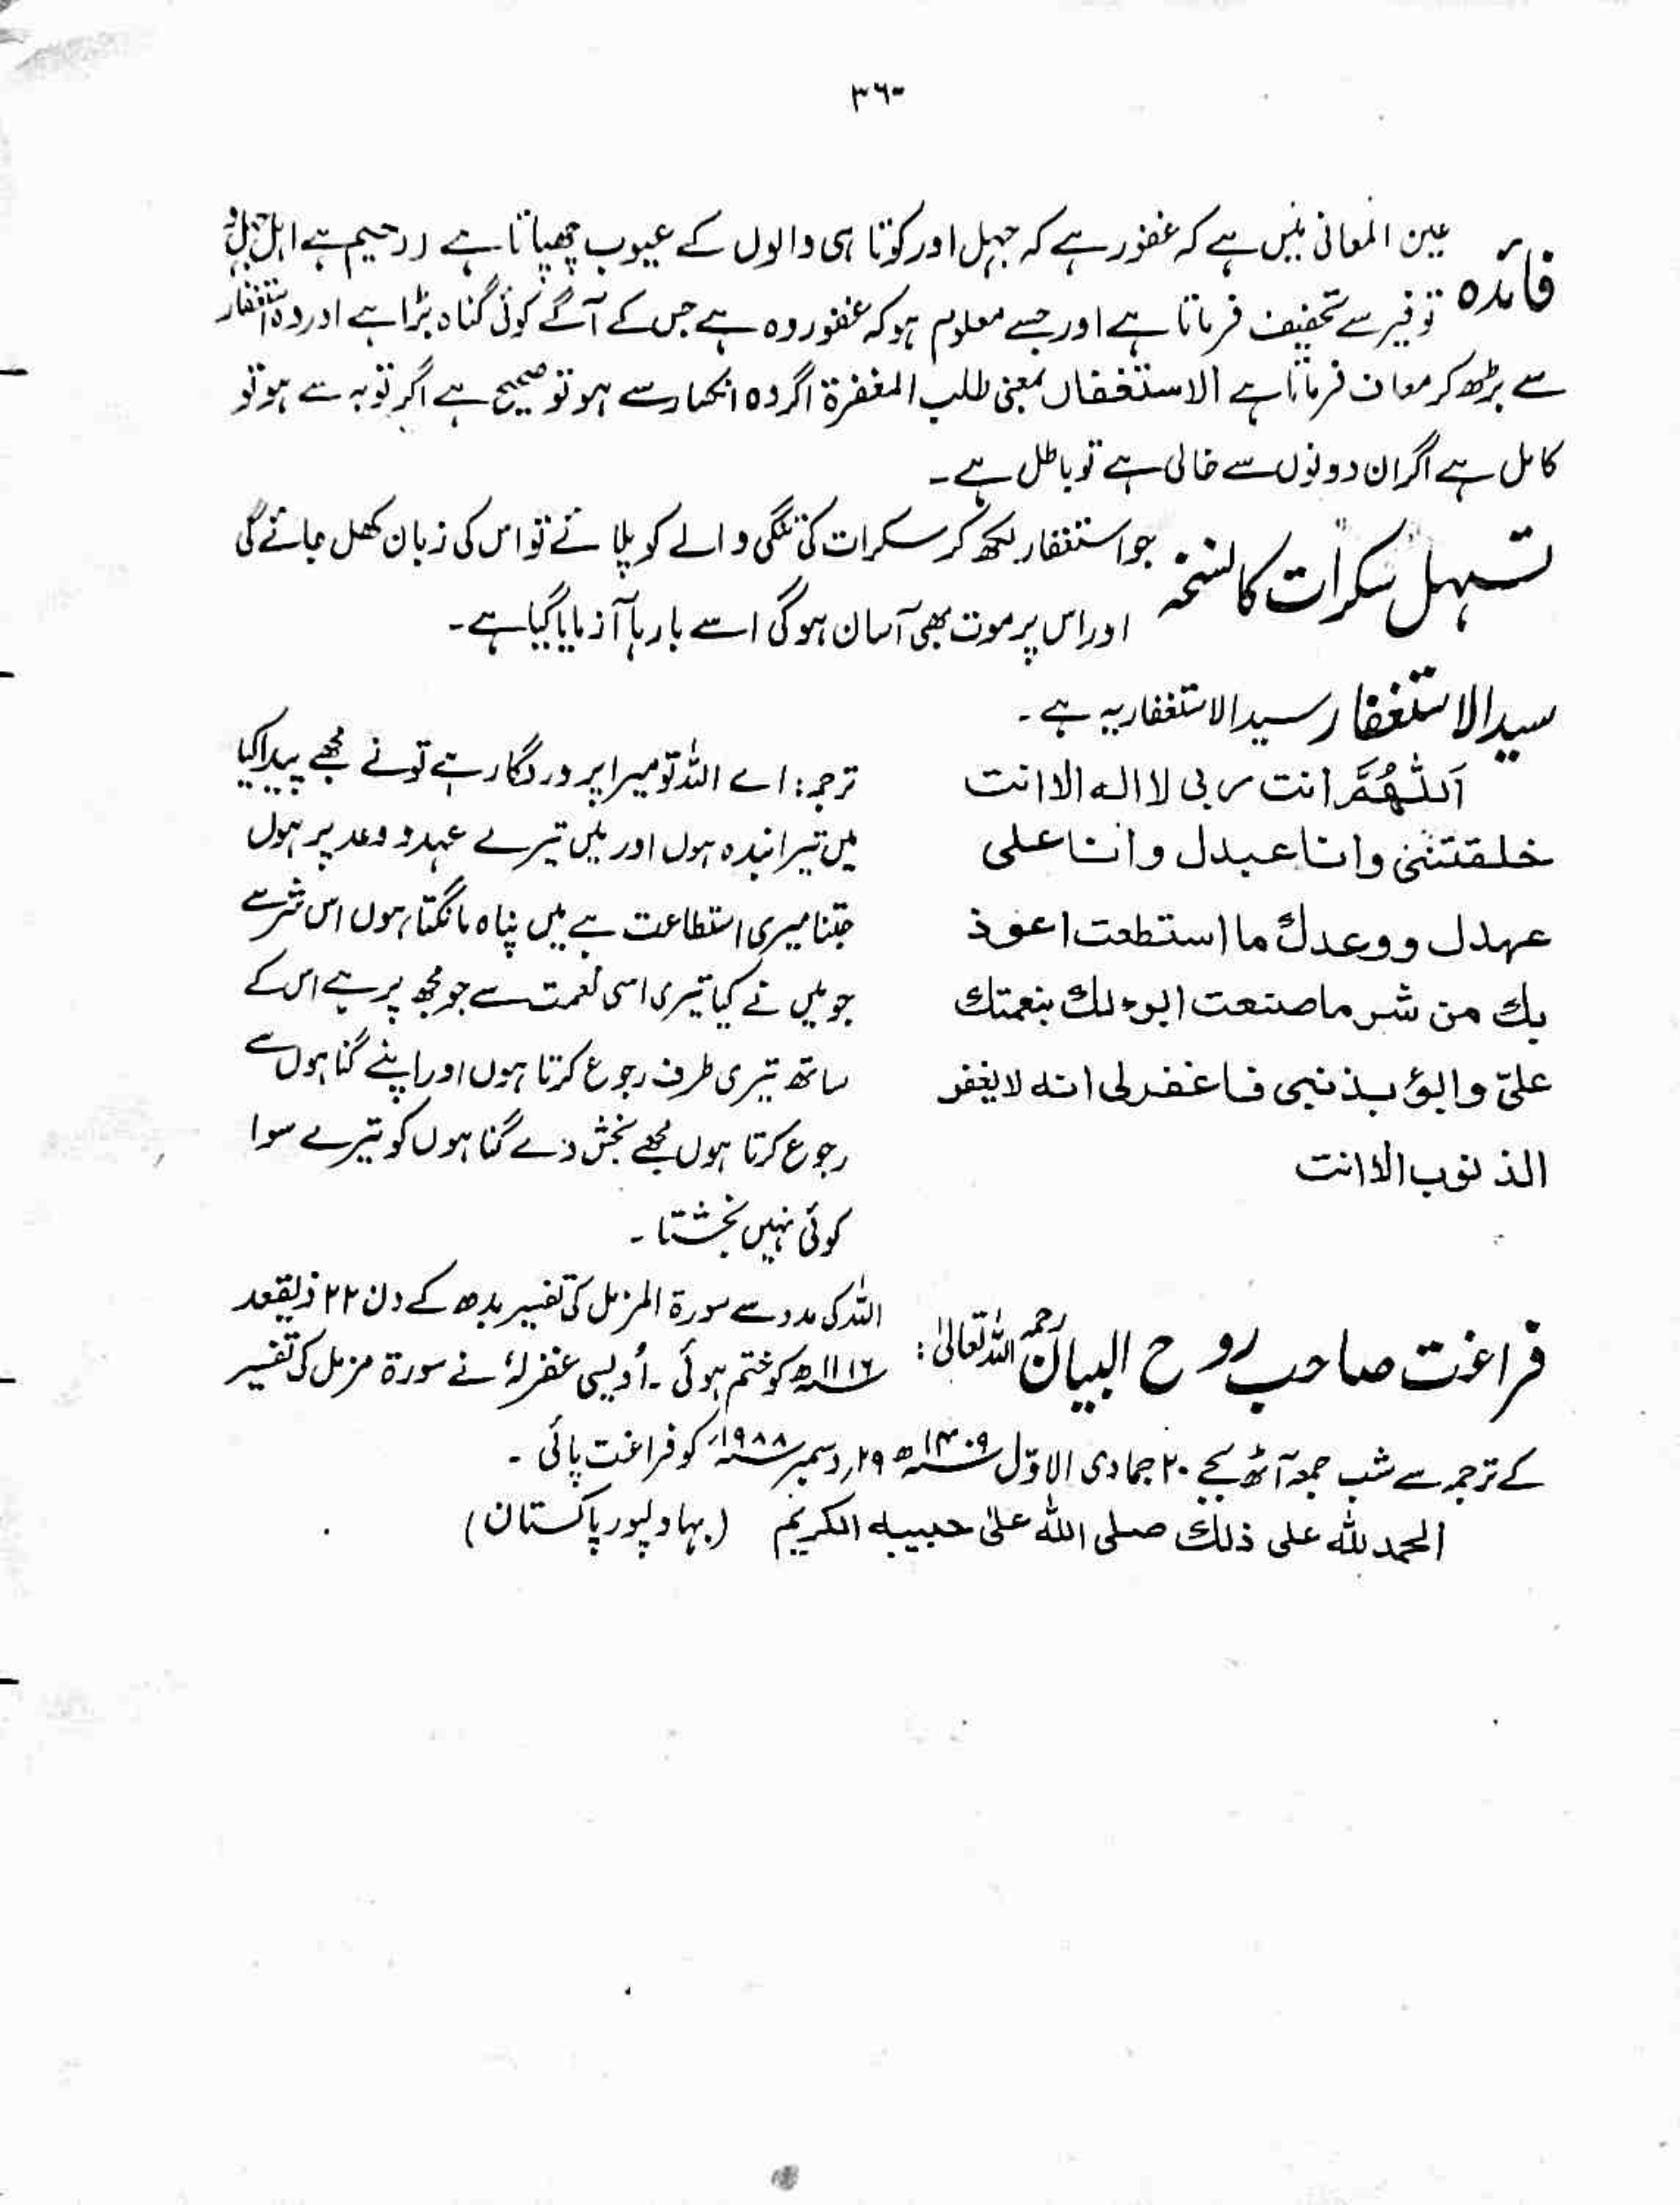 ۳۶۰
فائدہ عین المعانی میں ہے کہ غفور ہے کہ جہل اور کوتا ہی والوں کے عیوب چھپاتا ہے رحیم ہے اہل جہل و
توفیر سے تخفیف فرماتا ہے اور جسے معلوم ہو کہ غفور وہ ہے جس کے آگے کوئی گناہ بڑا ہے اور وہ استغفار
سے بڑھ کر معاف فرماتا ہے الاستغفار بمعنی طلب المغفرۃ اگر وہ انکسار سے ہو تو صحیح ہے اگر توبہ سے ہو تو
کامل ہے اگر ان دونوں سے خالی ہے تو باطل ہے۔
تسہیل سکرات کا نسخہ جو استغفار لکھ کر سکرات کی تنگی والے کو پلائے تو اس کی زبان کھل جائے گی
اور اس پر موت بھی آسان ہوگی اسے بارہا آزمایا گیا ہے۔
سید الاستغفار سید الاستغفار یہ ہے۔
اَللّٰهُمَّ انت ربی لا اله الا انت
خلقتنی وانا عبدل وانا على
عهدل ووعدك ما استطعت اعوذ
بك من شر ما صنعت ابوء لك بنعمتك
علیّ وابوؤ بذنبی فاغفرلی انه لا یغفر
الذنوب الا انت
ترجمہ: اے اللہ تو میرا پروردگار ہے تو نے مجھے پیدا کیا
میں تیرا بندہ ہوں اور میں تیرے عہد و وعد پر ہوں
جتنا میری استطاعت ہے میں پناہ مانگتا ہوں اس شر سے
جو میں نے کیا تیری اسی نعمت سے جو مجھ پر ہے اس کے
ساتھ تیری طرف رجوع کرتا ہوں اور اپنے گناہوں سے
رجوع کرتا ہوں مجھے بخش دے گناہوں کو تیرے سوا
کوئی نہیں بخشتا۔
فراغت صاحب روح البیان رحمہ اللہ تعالیٰ: اللہ کی مدد سے سورۃ المزمل کی تفسیر بدھ کے دن ۲۲ ذیقعد
۱۱۱۶ھ کو ختم ہوئی۔ اُویسی غفرلہٗ نے سورۃ مزمل کی تفسیر
کے ترجمہ سے شب جمعہ آٹھ بجے ۲۰ جمادی الاوّل ۱۴۰۹ھ ۲۹ دسمبر ۱۹۸۸ء کو فراغت پائی۔
الحمد للہ علی ذلك صلی اللہ علیٰ حبیبہ الکریم (بہاولپور پاکستان)